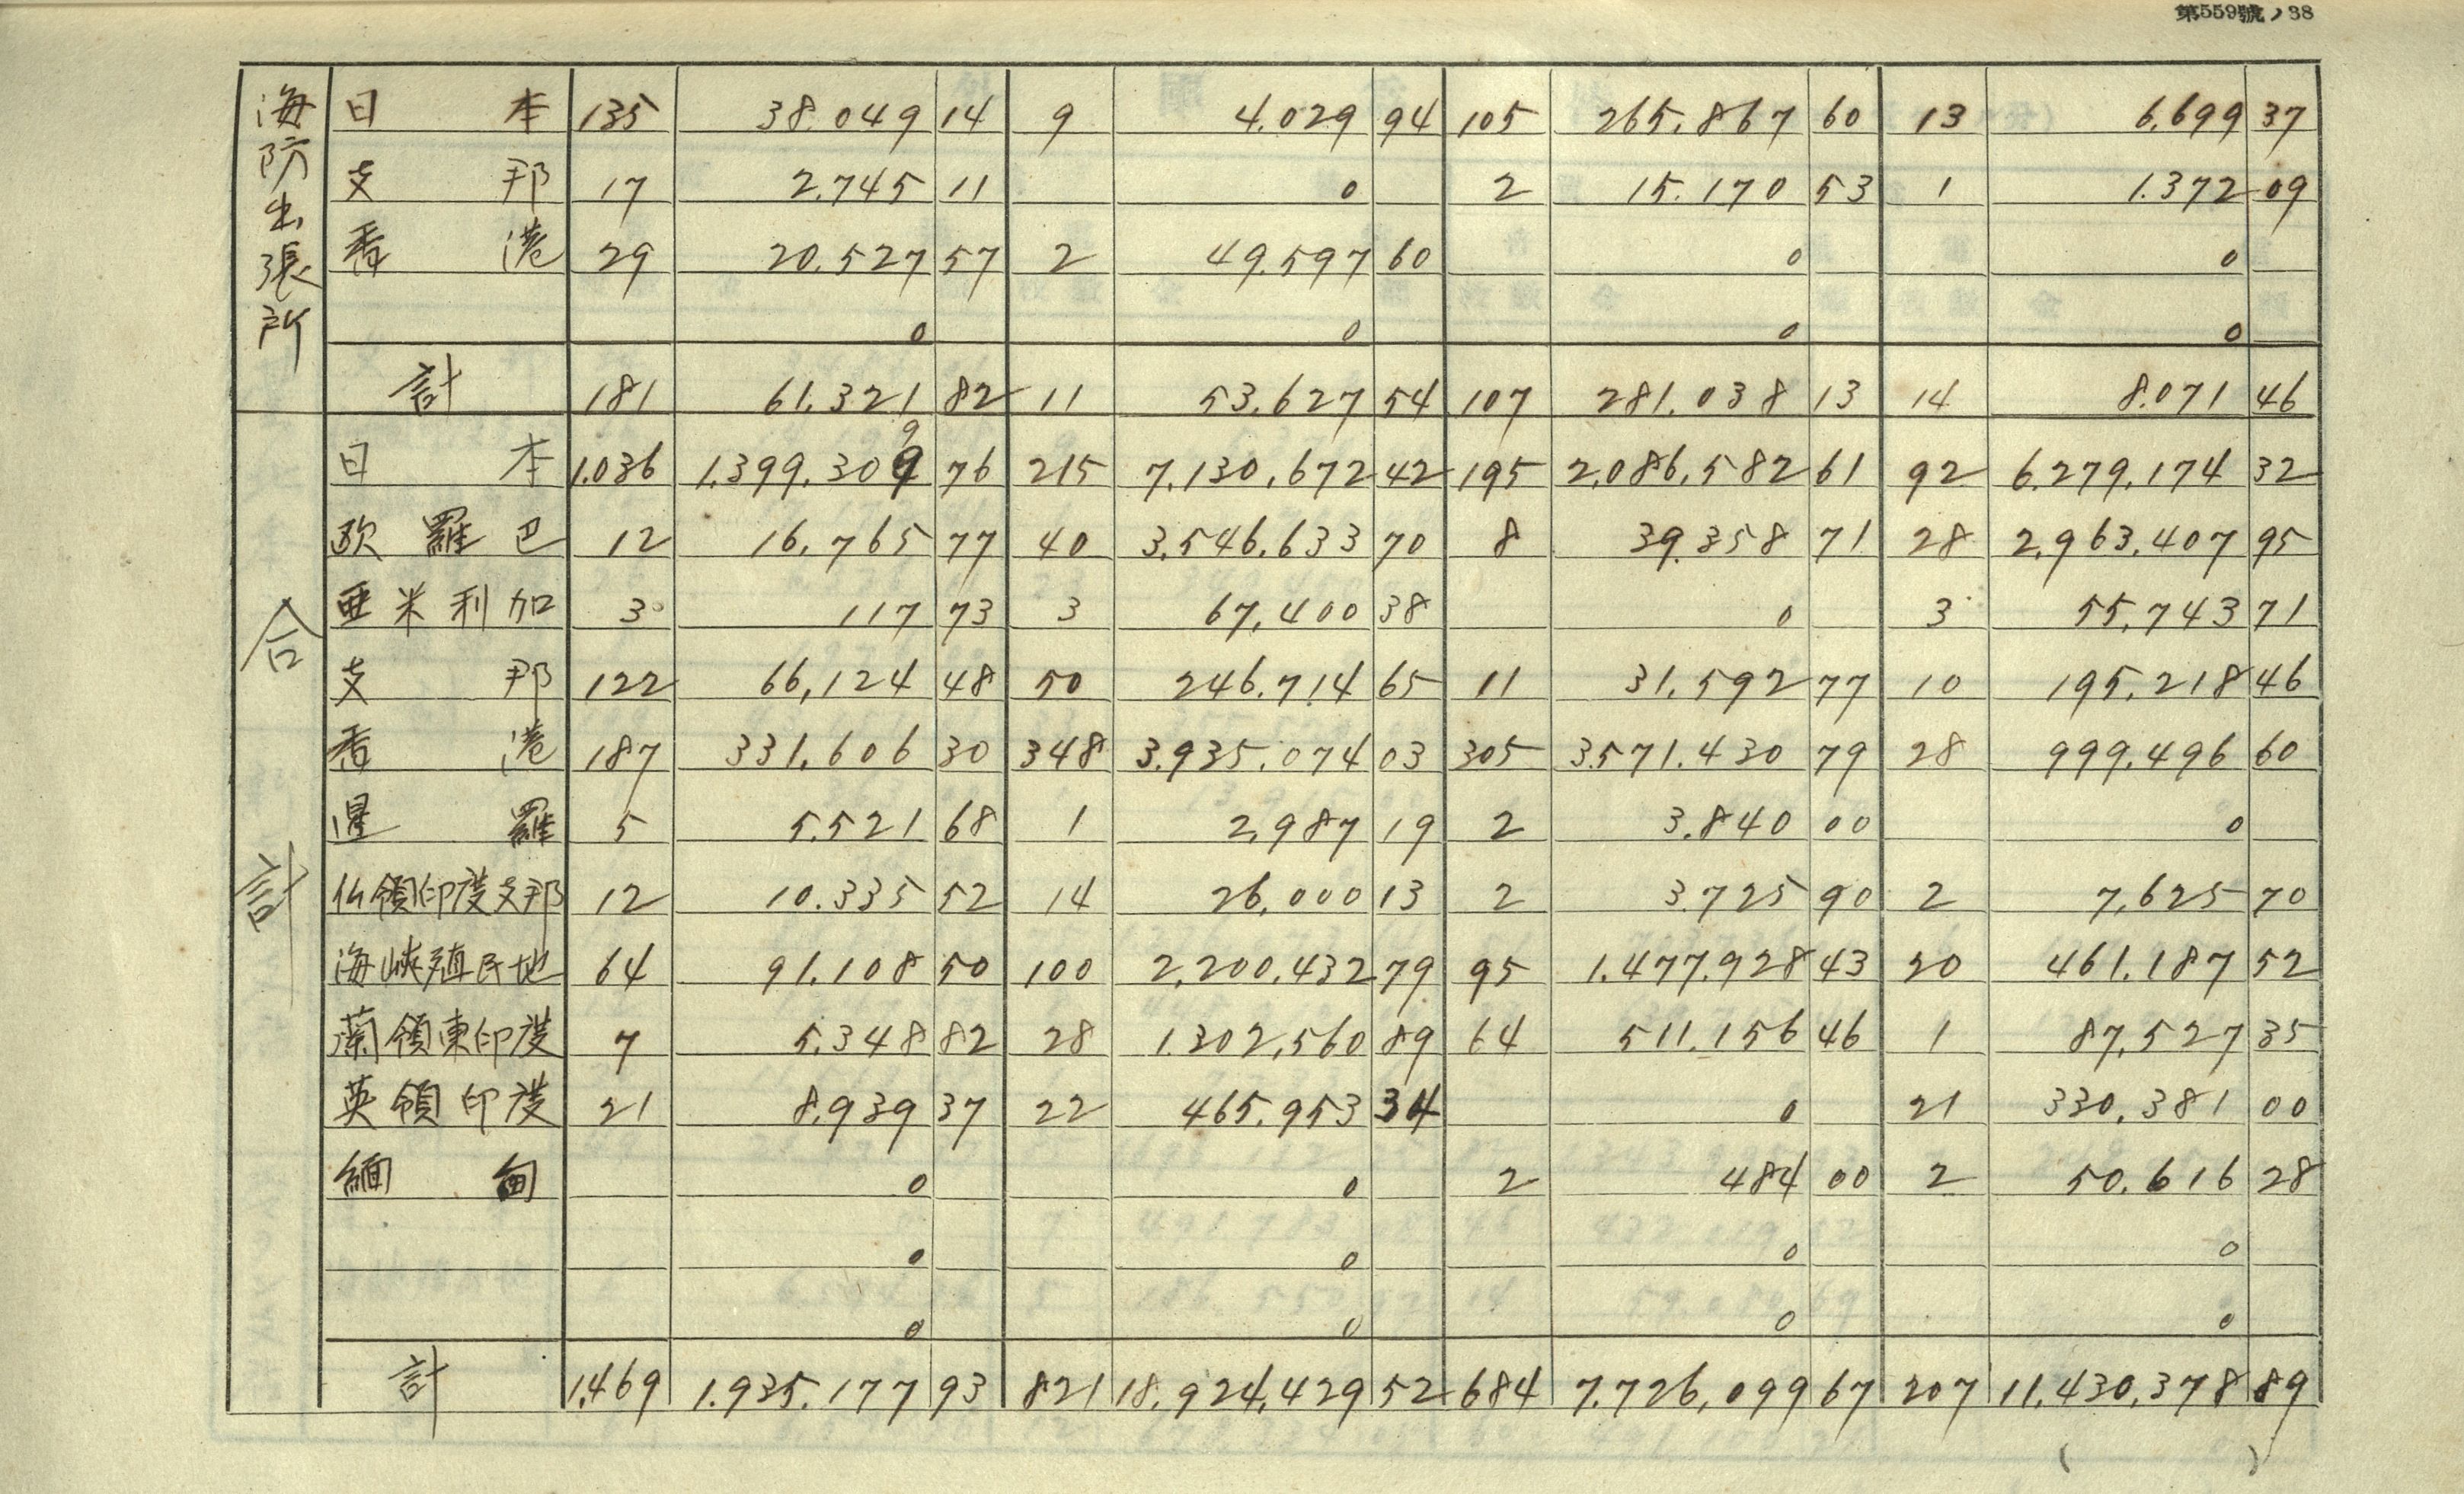 第559號ノ38
海防出張所
日本 135 38.049 14 9 4.029 94 105 265.867 60 13 6.699 37
支那 17 2.745 11 0 2 15.170 53 1 1.372 09
香港 29 20.527 57 2 49.597 60 0 0
0 0 0 0
計 181 61.321 82 11 53.627 54 107 281.038 13 14 8.071 46
合計
日本 1.036 1.399.309 76 215 7.130.672 42 195 2.086.582 61 92 6.279.174 32
欧羅巴 12 16.765 77 40 3.546.633 70 8 39.358 71 28 2.963.407 95
亜米利加 3 117 73 3 67.400 38 0 3 55.743 71
支那 122 66,124 48 50 246.714 65 11 31.592 77 10 195.218 46
香港 187 331.606 30 348 3.935.074 03 305 3.571.430 79 28 999.496 60
暹羅 5 5.521 68 1 2,987 19 2 3.840 00 0
仏領印度支那 12 10.335 52 14 26,000 13 2 3.725 90 2 7,625 70
海峡殖民地 64 91.108 50 100 2,200,432 79 95 1.477.928 43 20 461.187 52
蘭領東印度 7 5.348 82 28 1.302,560 89 64 511.156 46 1 87,527 35
英領印度 21 8.939 37 22 465.953 34 0 21 330.381 00
緬甸 0 0 2 484 00 2 50.616 28
0 0 0 0
0 0 0 0
計 1.469 1.935.177 93 821 18.924.429 52 684 7.726.099 67 207 11.430.378 89
( )